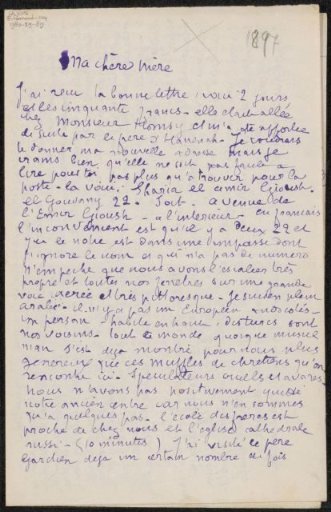 1897
Ma chère Mère
J'ai reçu ta bonne lettre voici 2 jours
et les cinquante francs - elle était allée
chez Monsieur et m'a été apportée
de suite par le père Je voudrais
te donner ma nouvelle adresse mais je
crains bien qu'elle ne soit pas facile à
lire pour toi, pas plus qu'à trouver pour la
poste - la voici, Sharia el emir Gioush
el Gouwany 22 - soit - avenue de
l'Emir Gioush - à l'intérieur - en français
l'inconvénient est qu'il y a deux 22 et
que le nôtre est dans une impasse dont
j'ignore le nom et qui n'a pas de numéro
n'empêche que nous avons l'escalier très
propre et toutes nos fenêtres sur une grande
voie aérée et très pittoresque - Je suis en plein
arabe - il n'y a pas un Européen à nos côtés -
un persan habite en haut, des turcs sont
nos voisins - tout le monde quoique musul
man s'est déjà montré pour nous plus
que ces mufles de chrétiens qu'on
rencontre ici - spéculateurs cruels et avares
Nous n'avons pas positivement quitté
notre ancien centre car nous n'en sommes
qu'à quelques pas - l'école des pères est
proche de chez nous et l'église cathédrale
aussi - (10 minutes) J'ai visité ce père
gardien déjà un certain nombre de fois